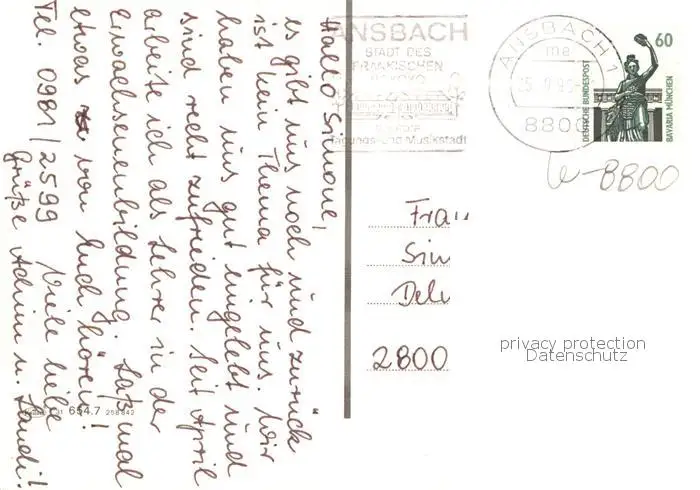 Hallo Simone,
es gibt uns noch und zurück
ist kein Thema für uns. Wir
haben uns gut eingelebt und
sind recht zufrieden. Seit April
arbeite ich als Lehrer in der
Erwachsenenbildung. Laß mal
etwas von Euch hören!
Tel. 0981/2599 Viele liebe
Grüße Achim u.
654.7
ANSBACH
STADT DES
FRÄNKISCHEN
ROKOKO
Tagungs- und Musikstadt
ANSBACH 1
me
8800
60
DEUTSCHE BUNDESPOST
BAVARIA MÜNCHEN
W-8800
Frau
Sim
Delm
2800
privacy protection
Datenschutz